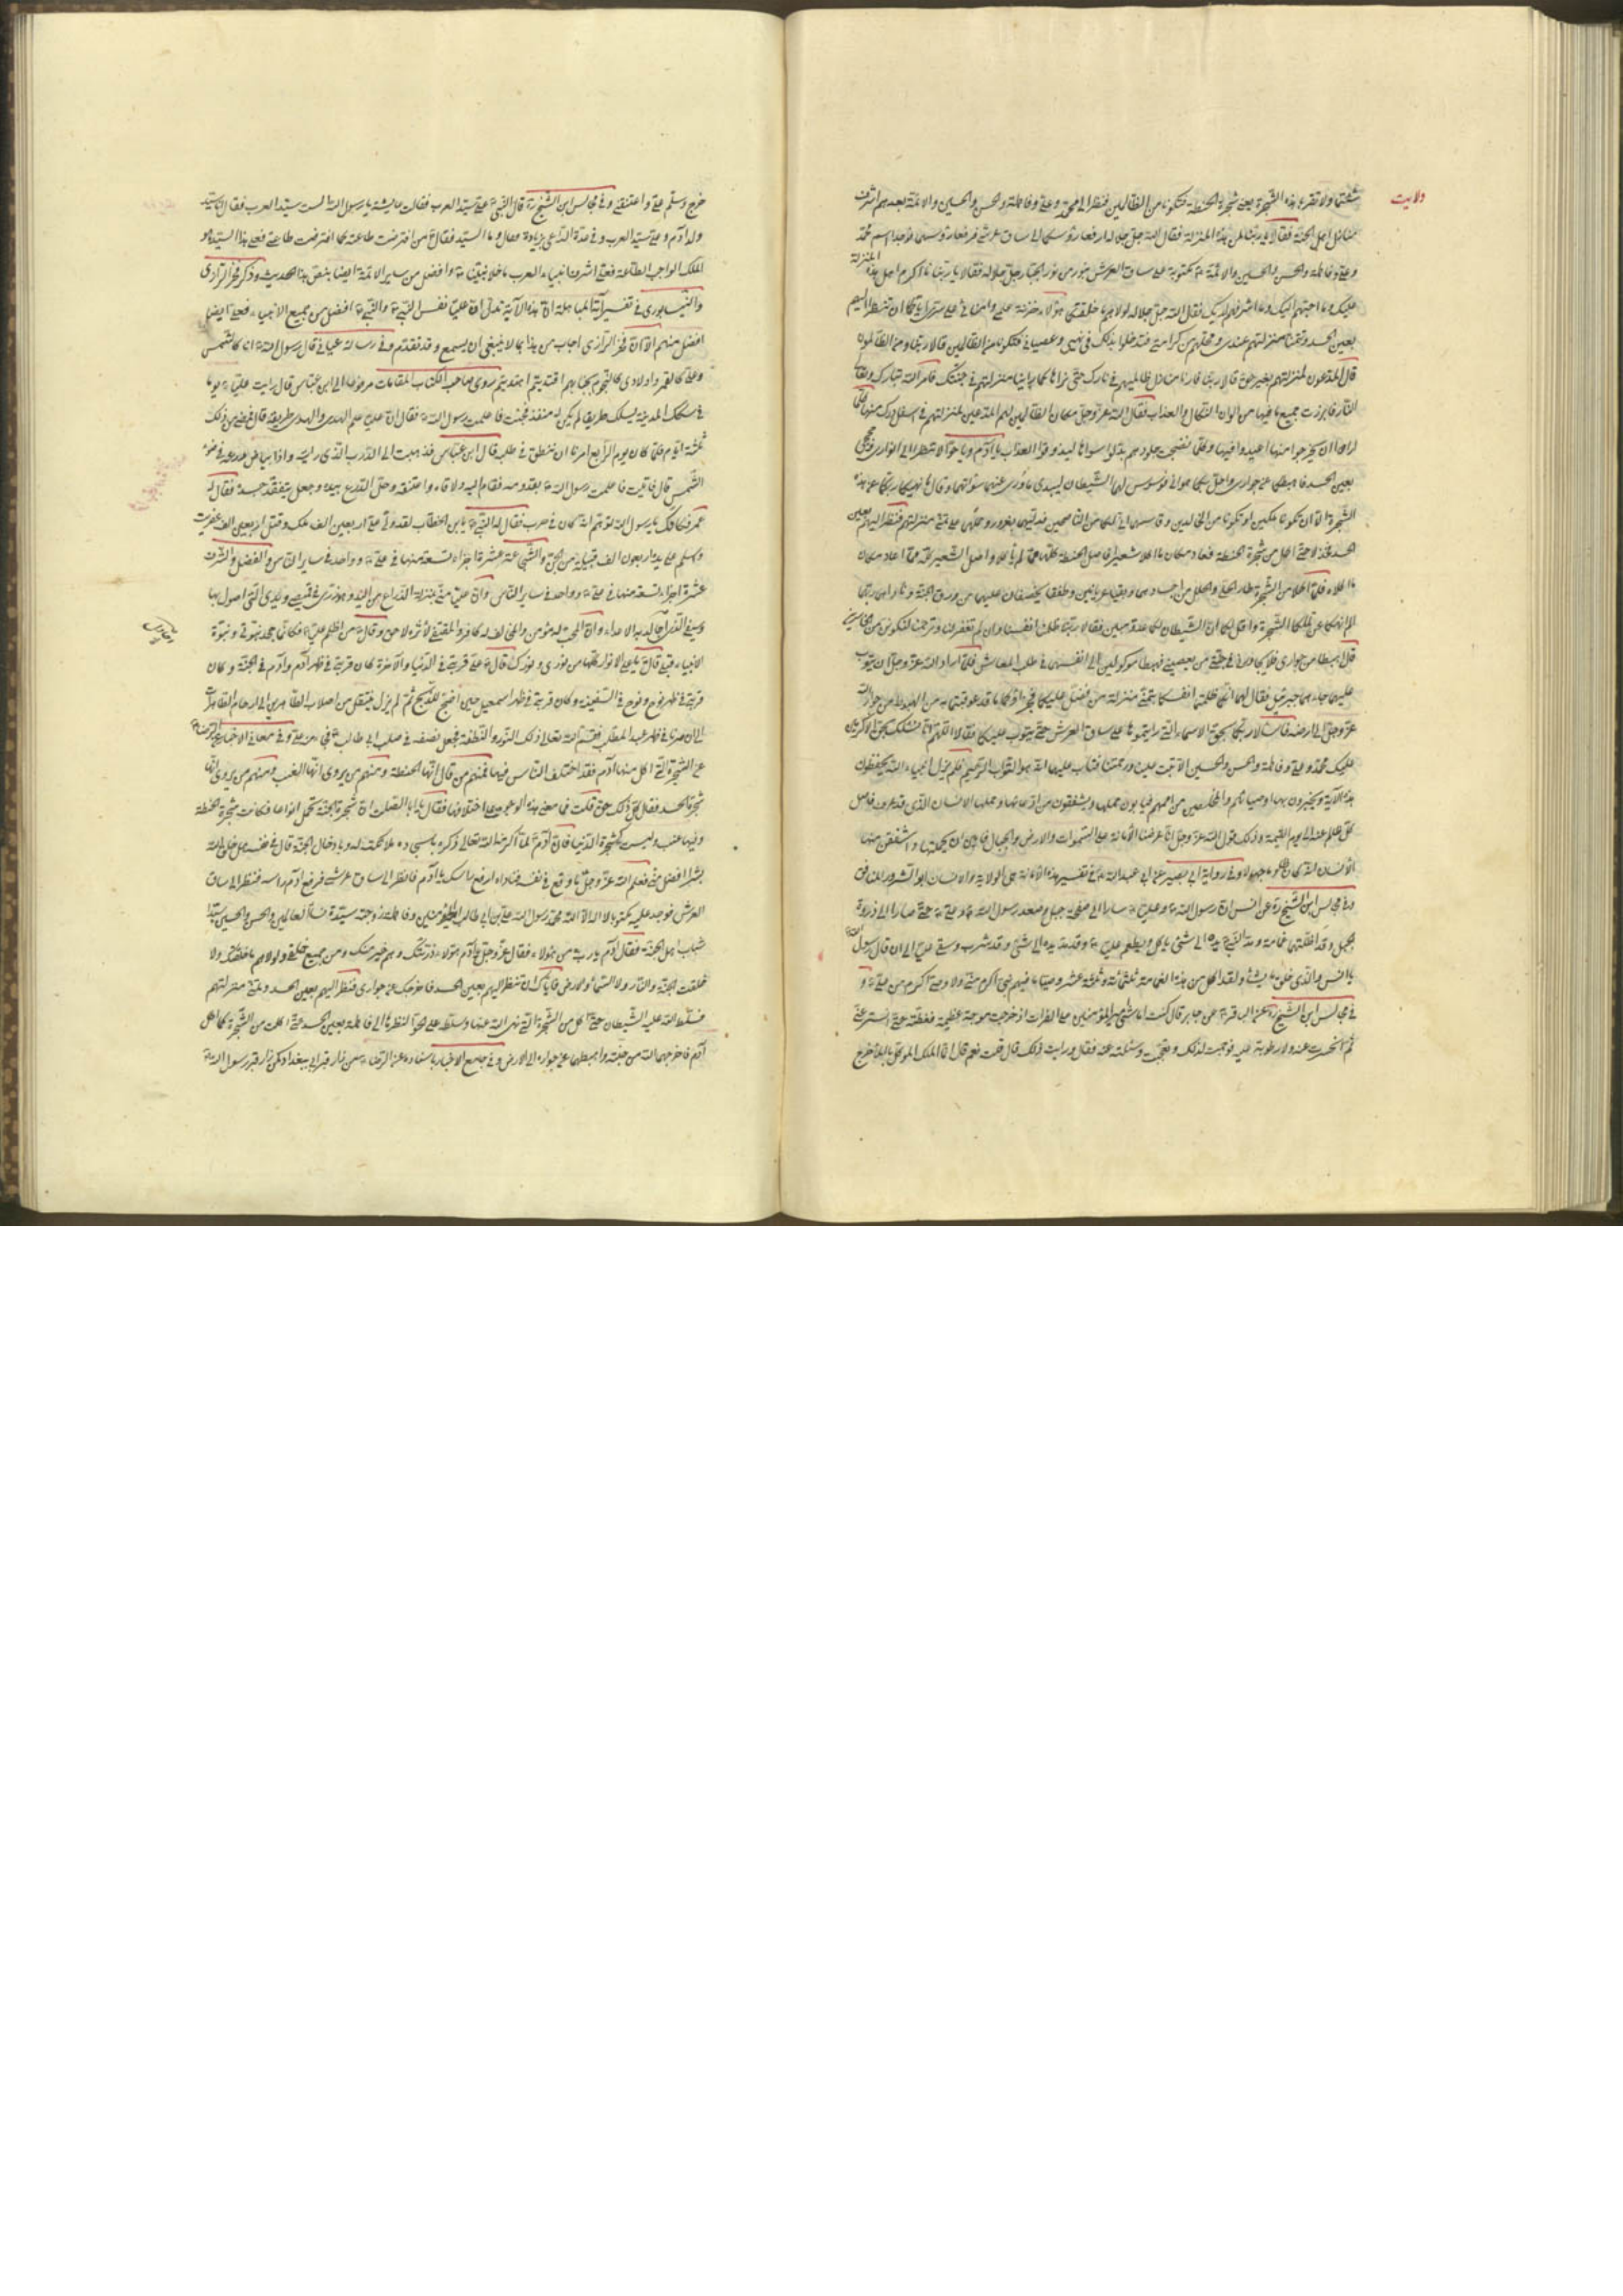 ولايت
شئتما ولا تقربا هذه الشجرة يعنى شجرة الحنطة فتكونا من الظالمين فنظرا الى محمد وعلى وفاطمة والحسن والحسين والائمة بعدهم اشرف
منازل اهل الجنة فقالا يا ربنا لمن هذه المنزلة فقال الله جل جلاله ارفعا رؤسكما الى ساق عرشى فرفعا رؤسهما فوجدا اسم محمد
وعلى وفاطمة والحسن والحسين والائمة مكتوبة على ساق العرش بنور من نور الجبار جل جلاله فقالا يا ربنا ما اكرم اهل هذه المنزلة
عليك وما احبهم اليك وما اشرفهم لديك فقال الله جل جلاله لولاهم ما خلقتكما هؤلاء خزنة علمى وامنائى على سرى اياكما ان تنظرا اليهم
بعين الحسد وتتمنيا منزلتهم عندى ومحلهم من كرامتى فتدخلا بذلك فى نهيى وعصيانى فتكونا من الظالمين قالا ربنا ومن الظالمون
قال المدعون لمنزلتهم بغير حق قالا ربنا فارنا منازل ظالميهم فى نارك حتى نراها كما راينا منزلتهم فى جنتك فامر الله تبارك وتعالى
النار فابرزت جميع ما فيها من الوان النكال والعذاب فقال الله عز وجل مكان الظالمين لهم المدعين لمنزلتهم فى اسفل درك منها كلما
ارادوا ان يخرجوا منها اعيدوا فيها وكلما نضجت جلودهم بدلوا سواها ليذوقوا العذاب يا آدم ويا حوا لا تنظرا الى انوارى وحججى
بعين الحسد فاهبطكما عن جوارى واحل بكما هوانى فوسوس لهما الشيطان ليبدى ما ورى عنهما من سوآتهما وقال ما نهيكما ربكما عن هذه
الشجرة الا ان تكونا ملكين او تكونا من الخالدين وقاسمهما انى لكما من الناصحين فدليهما بغرور وحملهما على تمنى منزلتهم فنظرا اليهم بعين
الحسد فخذلا حتى اكلا من شجرة الحنطة فعاد مكان ما اكلا شعيرا فاصل الحنطة كلها مما لم ياكلاه واصل الشعير كله مما عاد مكان
ما اكلاه فلما اكلا من الشجرة طار الحلى والحلل من اجسادهما وبقيا عريانين وطفقا يخصفان عليهما من ورق الجنة وناداهما ربهما
الم انهكما عن تلكما الشجرة واقل لكما ان الشيطان لكما عدو مبين فقالا ربنا ظلمنا انفسنا وان لم تغفر لنا وترحمنا لنكونن من الخاسرين
قال اهبطا من جوارى فلا يجاورنى فى جنتى من يعصينى فهبطا موكولين الى انفسهما فى طلب المعاش فلما اراد الله عز وجل ان يتوب
عليهما جاءهما جبرئيل فقال لهما انكما ظلمتما انفسكما بتمنى منزلة من فضل عليكما فجزاؤكما ما قد عوقبتما به من الهبوط من جوار الله
عز وجل الى ارضه فاسالا ربكما بحق الاسماء التى رايتموها على ساق العرش حتى يتوب عليكما فقالا اللهم انا نسئلك بحق الاكرمين
عليك محمد وعلى وفاطمة والحسن والحسين الا تبت علينا ورحمتنا فتاب عليهما انه هو التواب الرحيم فلم يزل انبياء الله يحفظون
هذه الامانة ويخبرون بها اوصيائهم والمخلصين من اممهم فيابون حملها ويشفقون من ادعائها وحملها الانسان الذى قد عرف فاصل
كل ظلم منه الى يوم القيمة وذلك قول الله عز وجل انا عرضنا الامانة على السموات والارض والجبال فابين ان يحملنها واشفقن منها
الانسان انه كان ظلوما جهولا وفى رواية ابى بصير عن ابى عبد الله فى تفسير هذه الامانة هى الولاية والانسان ابو الشرور المنافق
وفى مجالس ابن الشيخ عن انس ان رسول الله وعليا سارا الى جبل فصعد رسول الله وعلى حتى صارا الى ذروة
الجبل وقد اظلتهما غمامة ومد النبى يده الى شىء ياكل ويطعم عليا وقد مد يده الى شىء وقد شرب وسقى عليا الى ان قال رسول الله
يا انس والذى خلق ما يشاء ولقد اكل من هذه الغمامة ثلثمائة وثلثة عشر وصيا ما فيهم نبى اكرم منى ولا وصى اكرم من على و
فى مجالس ابن الشيخ عن الباقر عن جابر قال كنت اماشى امير المؤمنين على الفرات اذ خرجت موجة عظيمة فغطته حتى استتر عنى
ثم انحسرت عنه ولا رطوبة عليه فوجمت لذلك وتعجبت وسئلته عنه فقال ورايت ذلك قال قلت نعم قال انما الملك الموكل بالماء خرج
خرج وسلم على واعتنقنى وفى مجالس ابن الشيخ قال النبى على سيد العرب فقالت عايشة يا رسول الله الست سيد العرب فقال انا سيد
ولد آدم وعلى سيد العرب
الملك الواجب الطاعة فعلى اشرف انبياء العرب ما خلا نبينا وافضل من ساير الائمة ايضا بنص هذا الحديث وذكر فخر الرازى
والنيسابورى فى تفسير آية المباهلة ان هذه الآية تدل ان عليا نفس النبى والنبى افضل من جميع الانبياء فعلى ايضا
افضل منهم الا ان فخر الرازى اجاب من هذا بما لا ينبغى ان يسمع وقد تقدم وفى رسالة قال رسول الله انا كالشمس
وعلى كالقمر واولادى كالنجوم بايهم اقتديتم اهتديتم روى صاحب الكتاب المقامات مرفوعا الى ابن عباس قال رايت عليا يوما
فى سكك المدينة يسلك طريقا لم يكن له منفذ فجئت فاعلمت رسول الله فقال ان عليا علم الهدى والهدى طريقه قال فمضى من ذلك
ثلثة ايام فلما كان يوم الرابع امرنا ان ننطلق فى طلبه قال ابن عباس فذهبت الى الدرب الذى رايته واذا بياض درعه فى ضوء
الشمس قال فاتيت فاعلمت رسول الله بقدومه فقام اليه ولاقاه واعتنقه وحل الدرع بيده وجعل يتفقد جسده فقال له
عمر كانك يا رسول الله تتوهم انه كان فى حرب فقال له النبى يا بن الخطاب لقد ولى على اربعين الف ملك وقتل اربعين الف عفريت
واسلم على يديه اربعون الف قبيلة من الجن والشجاعة عشرة اجزاء تسعة منها فى على وواحد فى ساير الناس والفضل والشرف
عشرة اجزاء تسعة منها فى على وواحد فى ساير الناس وان عليا منى بمنزلة الذراع من اليد وهو زرى فى قميصى ويدى التى اصول بها
وسيفى الذى اجالد به الاعداء وان المحب له مؤمن والمخالف له كافر والمقتفى لاثره لاحق وقال من اظلم عليا فكانما جحد نبوتى ونبوة
الانبياء قبلى قال يا على الانوار كلها من نورى ونورك قال على قرينى فى الدنيا والآخرة كان قرينى فى ظهر آدم وآدم فى الجنة وكان
قرينى فى ظهر نوح ونوح فى السفينة وكان قرينى فى ظهر اسمعيل حين اضجع للذبح ثم لم يزل ينتقل من اصلاب الطاهرين الى ارحام الطاهرات
الى ان صرنا فى ظهر عبد المطلب فقسم الله تعالى ذلك النور والنطفة فجعل نصفه فى صلب ابى طالب فجاء منه على وفى معانى الاخبار
عن الشجرة التى اكل منها آدم فقد اختلف الناس فيها فمنهم من قال انها الحنطة ومنهم من يروى انها العنب ومنهم من يروى انها
شجرة الحسد فقال كل ذلك حق قلت فما معنى هذه الوجوه على اختلافها فقال يا ابا الصلت ان شجرة الجنة تحمل انواعا فكانت شجرة الحنطة
وفيها عنب وليست كشجرة الدنيا فان آدم لما اكرمه الله تعالى ذكره باسجاده ملائكته له وبادخاله الجنة قال فى نفسه هل خلق الله
بشرا افضل منى فعلم الله عز وجل ما وقع فى نفسه فناداه ارفع راسك يا آدم فانظر الى ساق عرشى فرفع آدم راسه فنظر الى ساق
العرش فوجد عليه مكتوبا لا اله الا الله محمد رسول الله على بن ابى طالب امير المؤمنين وفاطمة زوجته سيدة نساء العالمين والحسن والحسين سيدا
شباب اهل الجنة فقال آدم يا رب من هؤلاء فقال عز وجل يا آدم هؤلاء ذريتك وهم خير منك ومن جميع خلقى ولولاهم ما خلقتك ولا
خلقت الجنة والنار ولا السماء والارض فاياك ان تنظر اليهم بعين الحسد فاخرجك عن جوارى فنظر اليهم بعين الحسد وتمنى منزلتهم
فتسلط الله عليه الشيطان حتى اكل من الشجرة التى نهى الله عنها وتسلط على حوا لنظرها الى فاطمة بعين الحسد حتى اكلت من الشجرة كما اكل
آدم فاخرجهما الله من جنته واهبطهما عن جواره الى الارض وفى جامع الاخبار باسناده عن الرضا من زار قبر ابى ببغداد كمن زار قبر رسول الله